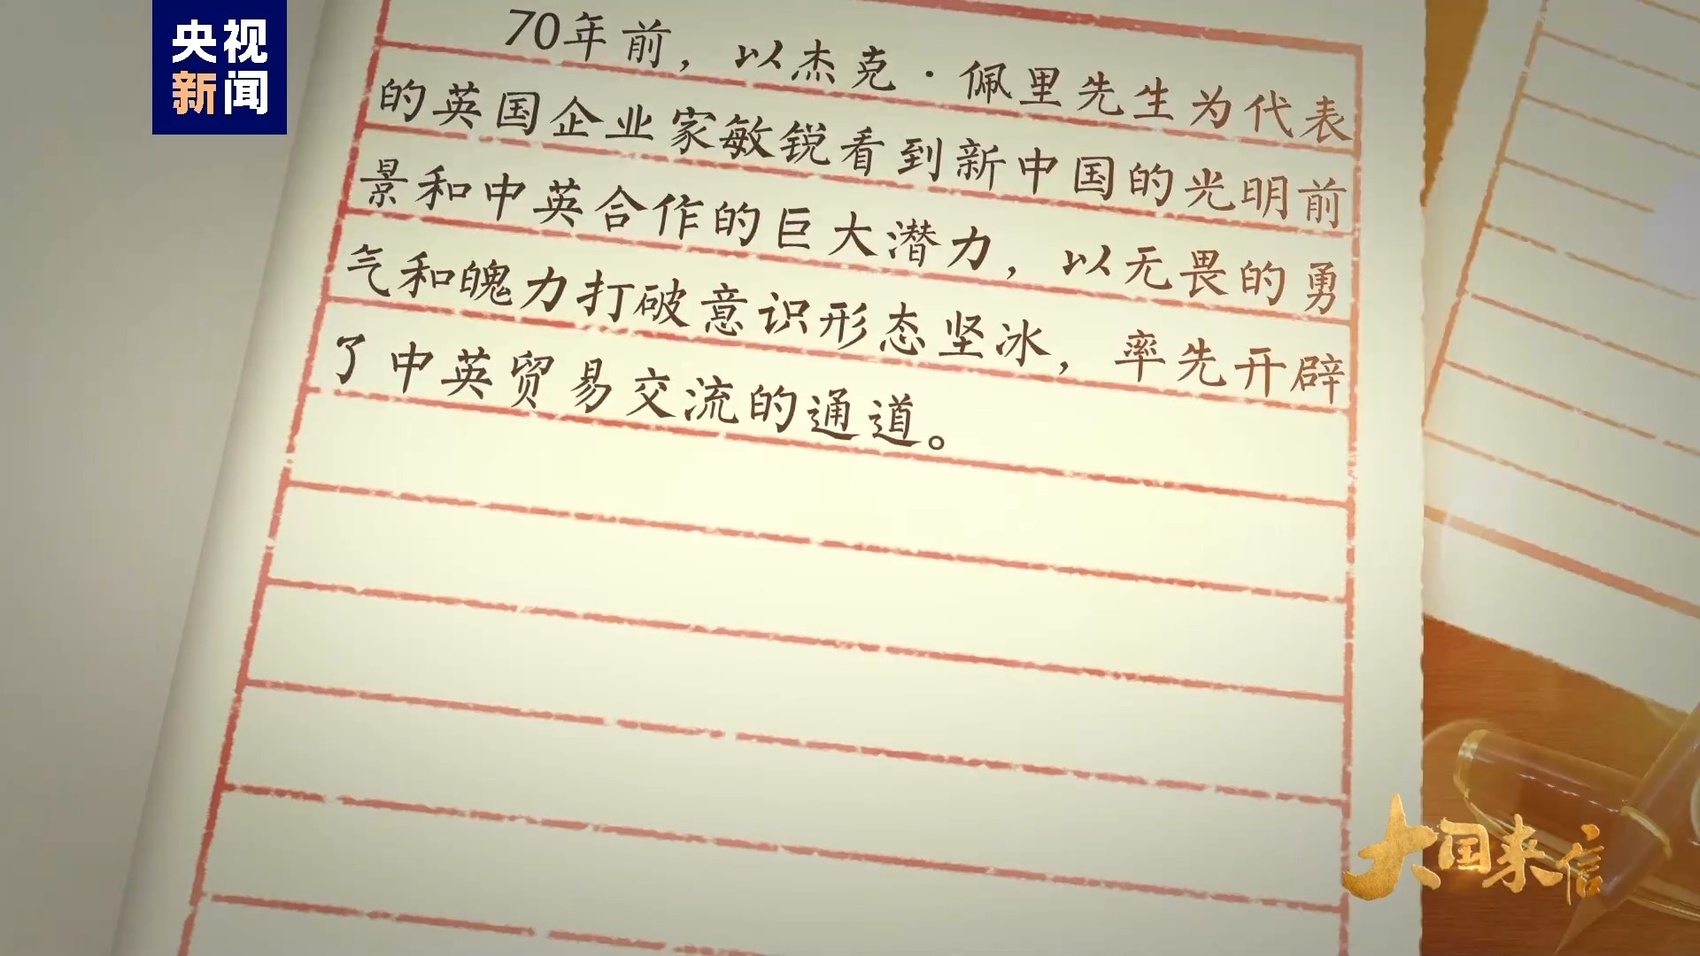 央视
新闻
70年前，以杰克·佩里先生为代表
的英国企业家敏锐看到新中国的光明前
景和中英合作的巨大潜力，以无畏的勇
气和魄力打破意识形态坚冰，率先开辟
了中英贸易交流的通道。
大国来信